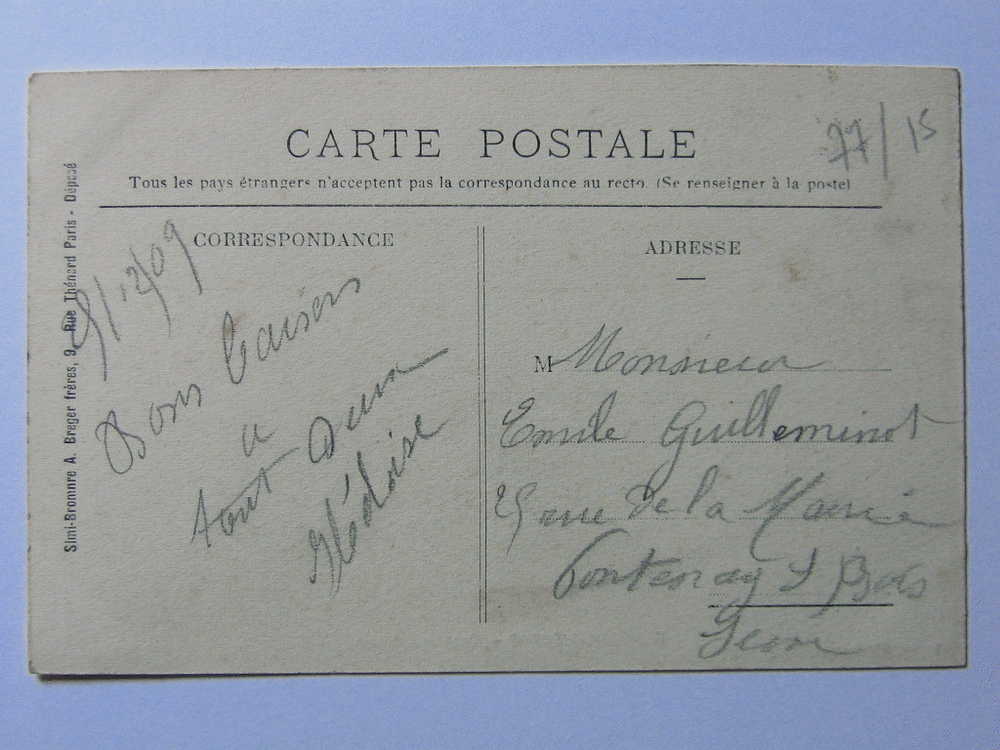 CARTE POSTALE
77/15
Tous les pays étrangers n'acceptent pas la correspondance au recto. (Se renseigner à la poste)
Simi-Bromure A. Breger frères, 9, Rue Thénard Paris - Déposé
CORRESPONDANCE
5/12/09
Bons baisers
a
tout Deux
Héloise
ADRESSE
M Monsieur
Emile Guilleminot
25 rue de la Mairie
Fontenay s Bois
Seine